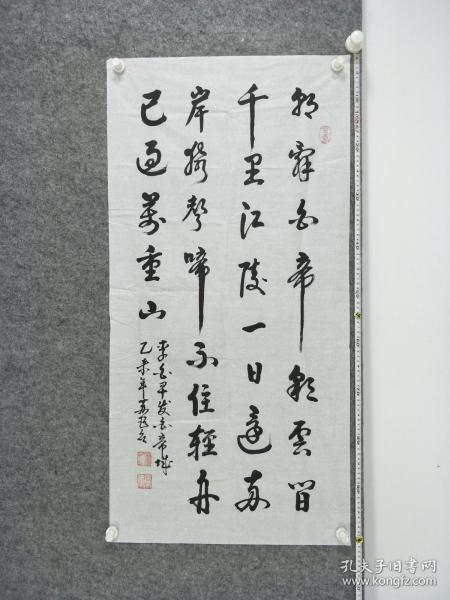 朝辞白帝彩云间
千里江陵一日还两
岸猿声啼不住轻舟
已过万重山
李白早发白帝城
乙未年
孔夫子旧书网
www.kongfz.com